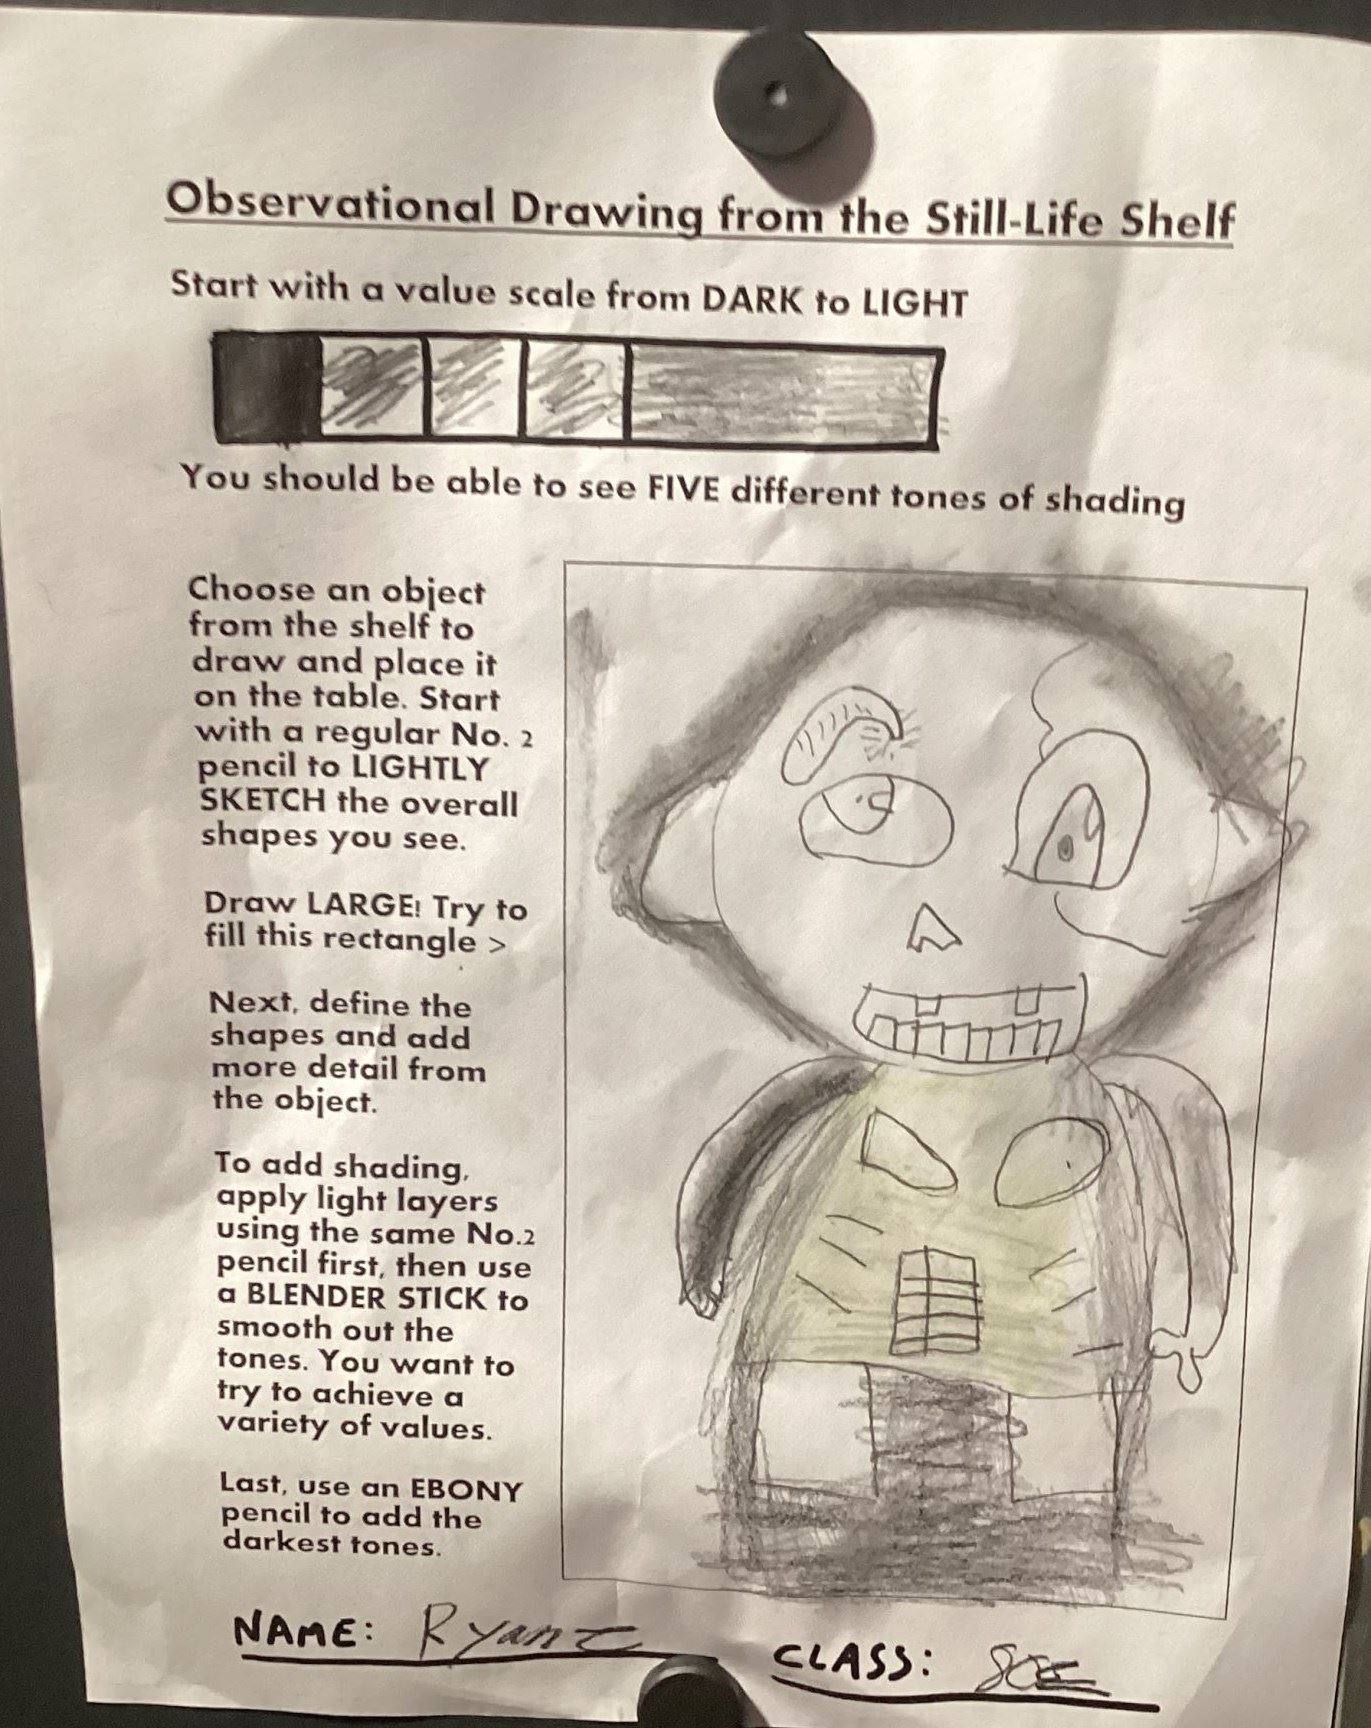 Observational Drawing from the Still-Life Shelf
Start with a value scale from DARK to LIGHT
You should be able to see FIVE different tones of shading
Choose an object
from the shelf to
draw and place it
on the table. Start
with a regular No. 2
pencil to LIGHTLY
SKETCH the overall
shapes you see.
Draw LARGE! Try to
fill this rectangle >
Next, define the
shapes and add
more detail from
the object.
To add shading,
apply light layers
using the same No.2
pencil first, then use
a BLENDER STICK to
smooth out the
tones. You want to
try to achieve a
variety of values.
Last, use an EBONY
pencil to add the
darkest tones.
NAME: Ryan
CLASS: